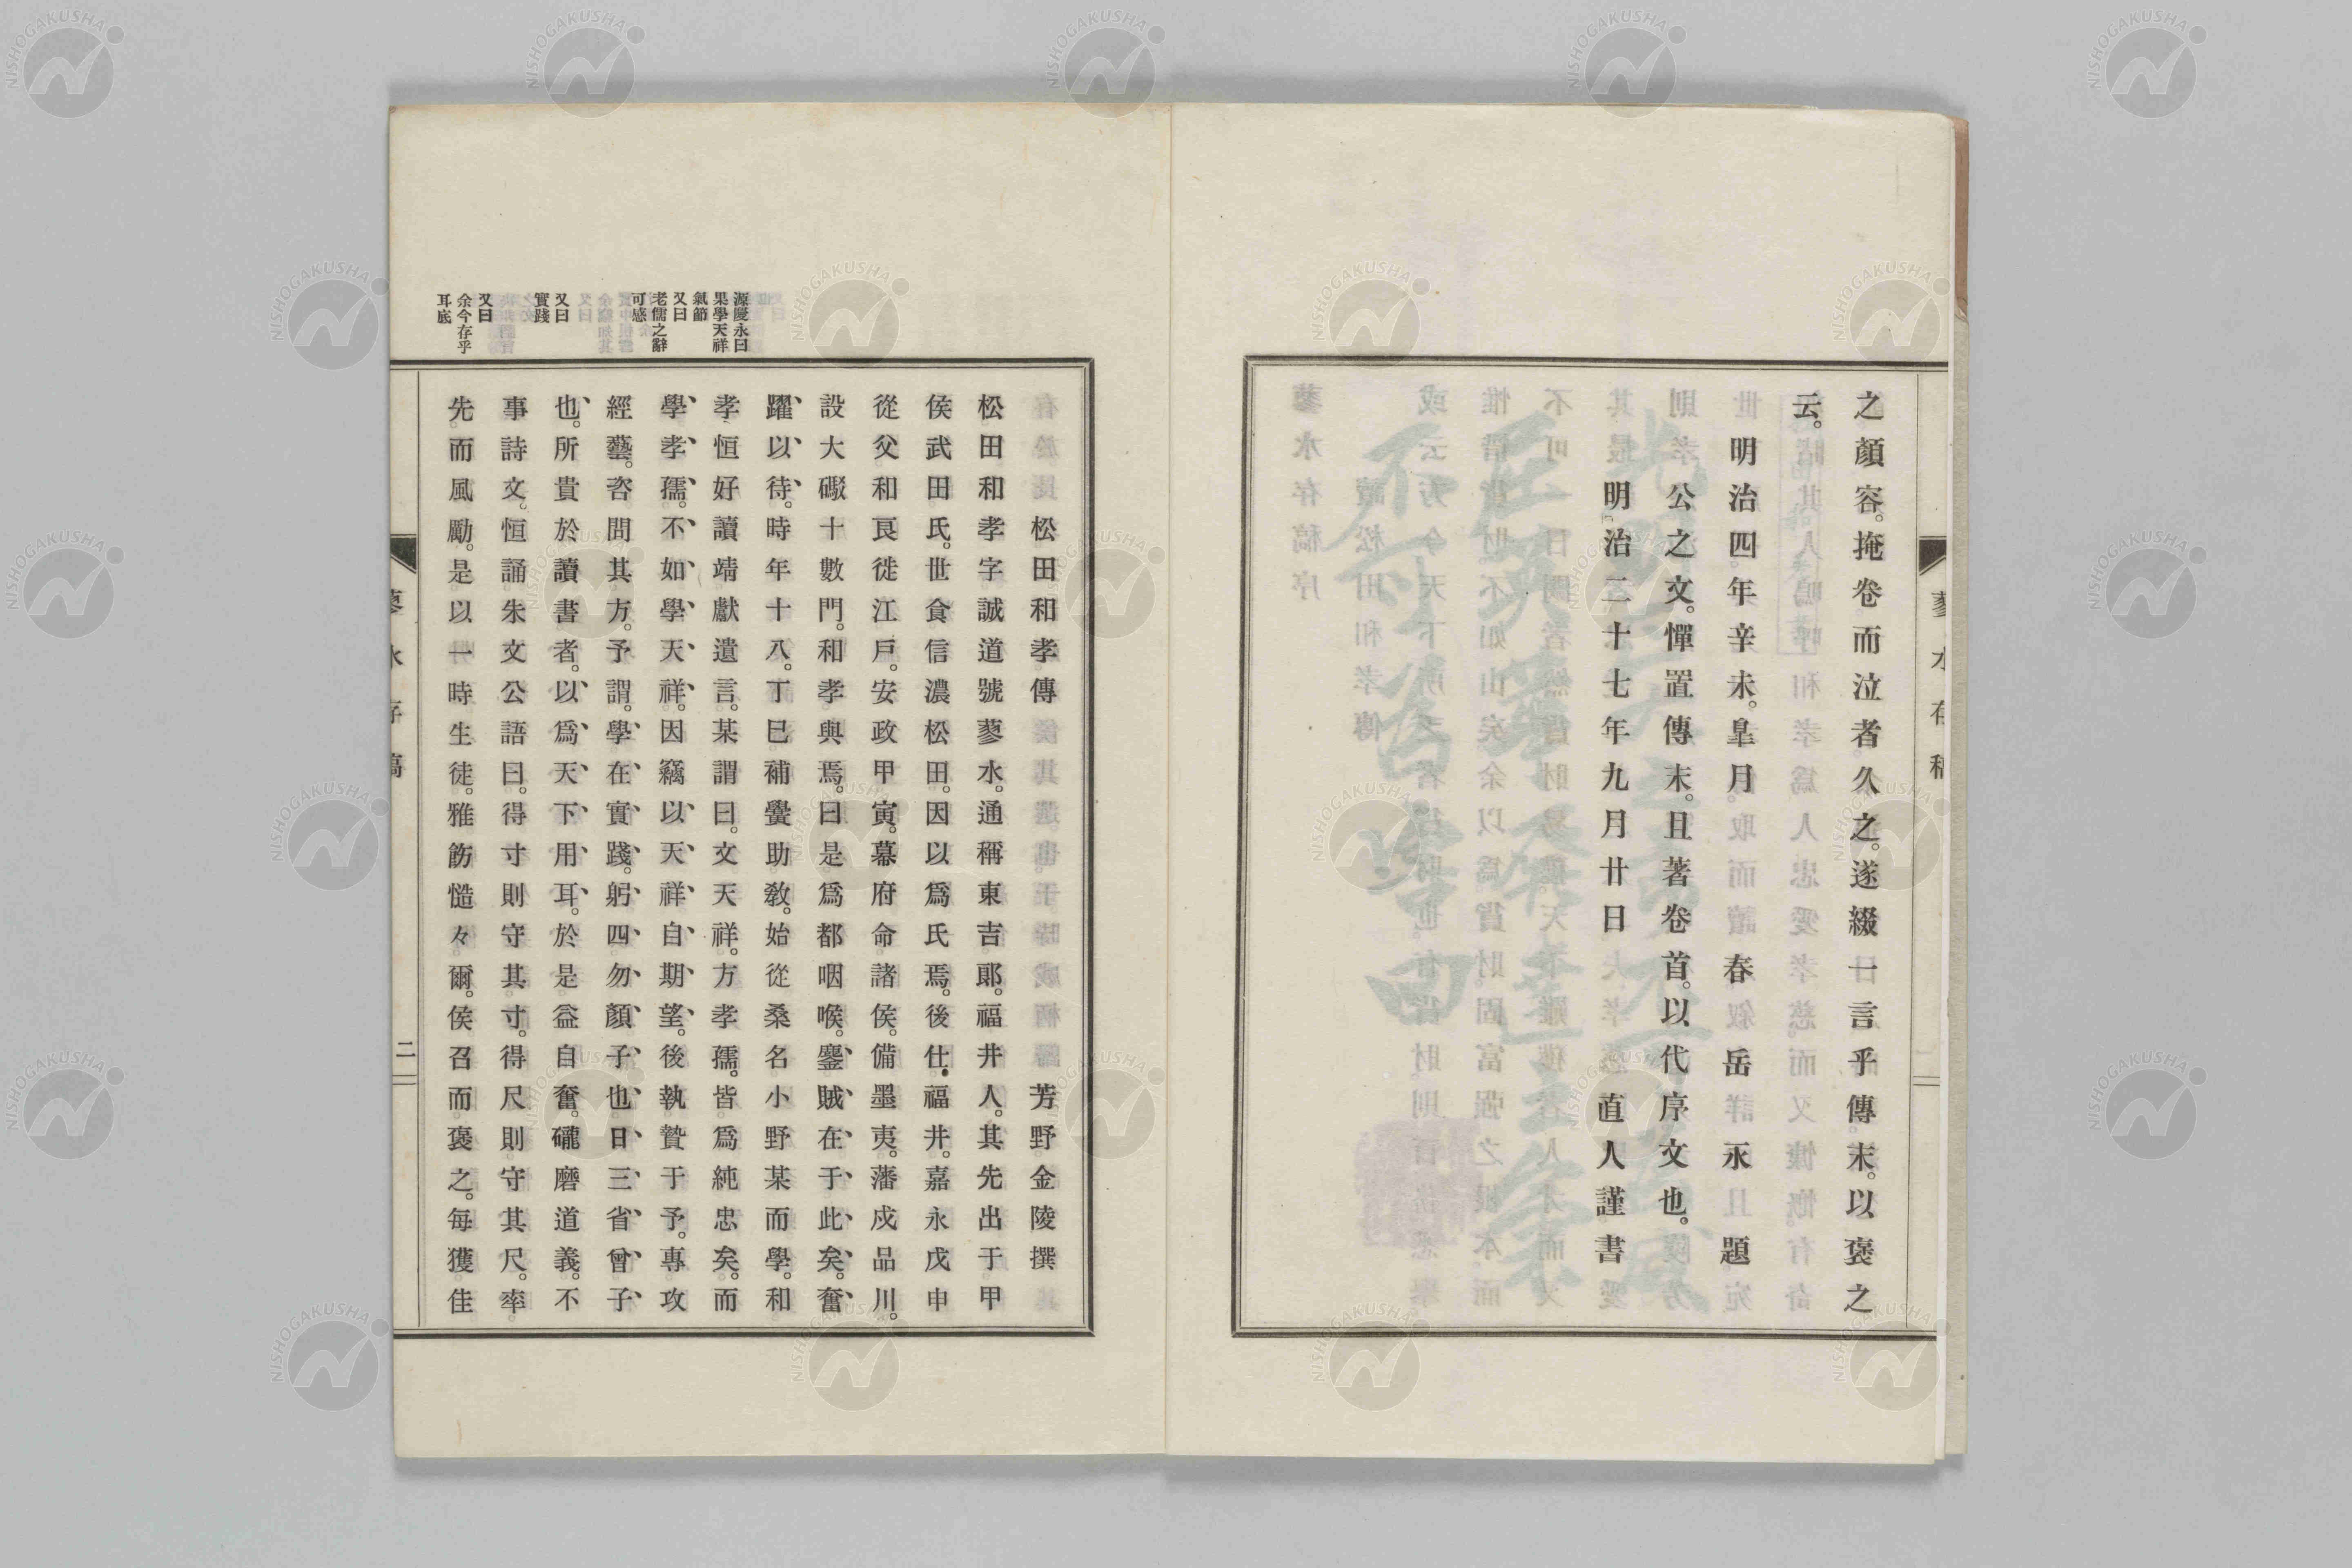 之顏容。掩卷而泣者久之。遂綴一言乎傳末。以褒之
云。
明治四年辛未。皐月　春岳詳永題
則孝公之文。憚置傳末。且著卷首。以代序文也。
明治二十七年九月廿日　直人謹書
蓼水存稿
源慶永曰
果學天祥
氣節
又曰
老儒之辭
可感
又曰
實踐
又曰
余今存乎
耳底
松田和孝傳　芳野金陵撰
松田和孝字誠道號蓼水。通稱東吉郞。福井人。其先出于甲
侯武田氏。世食信濃松田。因以爲氏焉。後仕福井。嘉永戊申
從父和良徙江戶。安政甲寅。幕府命諸侯。備墨夷。藩戍品川。
設大礮十數門。和孝與焉。曰是爲都咽喉。鏖賊在于此矣。奮
躍以待。時年十八。丁巳補黌助敎。始從桑名小野某而學。和
孝恒好讀靖獻遺言。某謂曰。文天祥。方孝孺。皆爲純忠矣。而
學孝孺。不如學天祥。因竊以天祥自期望。後執贄于予。專攻
經藝。咨問其方。予謂。學在實踐。躬四勿顏子也、日三省曾子
也。所貴於讀書者。以爲天下用耳。於是益自奮。礲磨道義。不
事詩文。恒誦朱文公語曰。得寸則守其寸。得尺則守其尺。率
先。而風勵。是以一時生徒。雅飭慥々爾。侯召而褒之。每獲佳
蓼水存稿
二